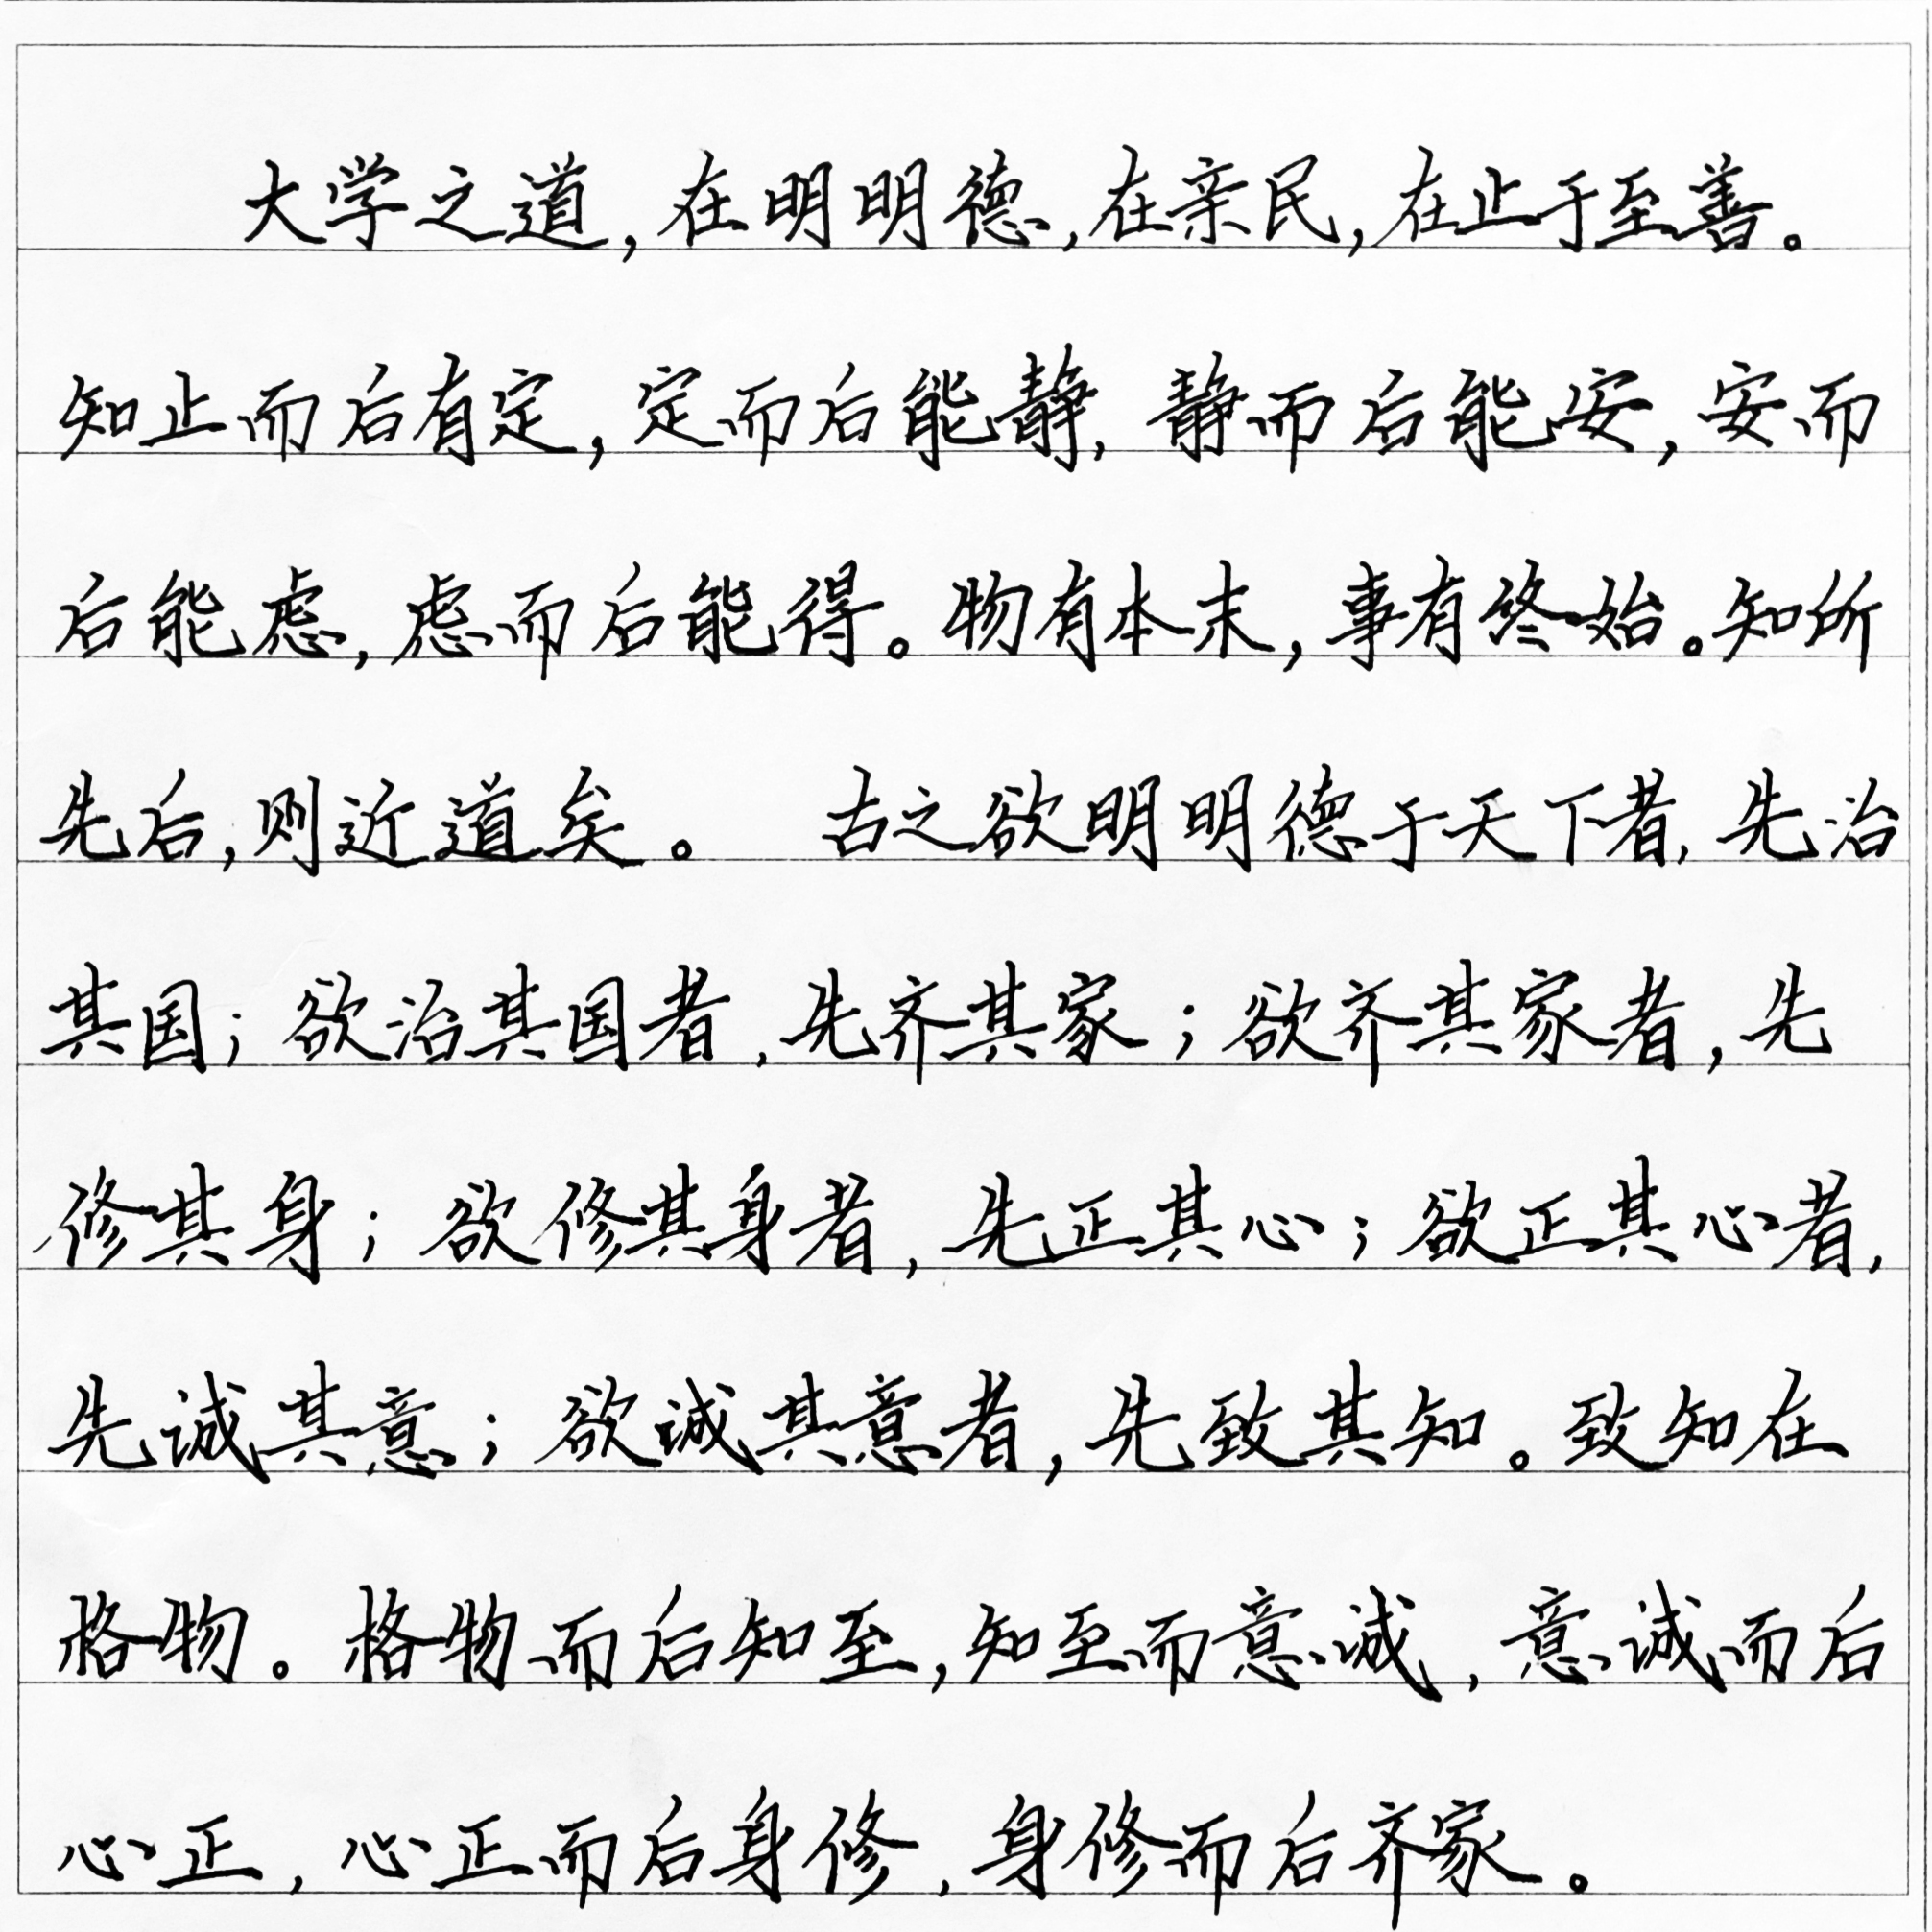 大学之道,在明明德,在亲民,在止于至善。
知止而后有定,定而后能静,静而后能安,安而
后能虑,虑而后能得。物有本末,事有终始。知所
先后,则近道矣。 古之欲明明德于天下者,先治
其国;欲治其国者,先齐其家;欲齐其家者,先
修其身;欲修其身者,先正其心;欲正其心者,
先诚其意;欲诚其意者,先致其知。致知在
格物。格物而后知至,知至而意诚,意诚而后
心正,心正而后身修,身修而后齐家。